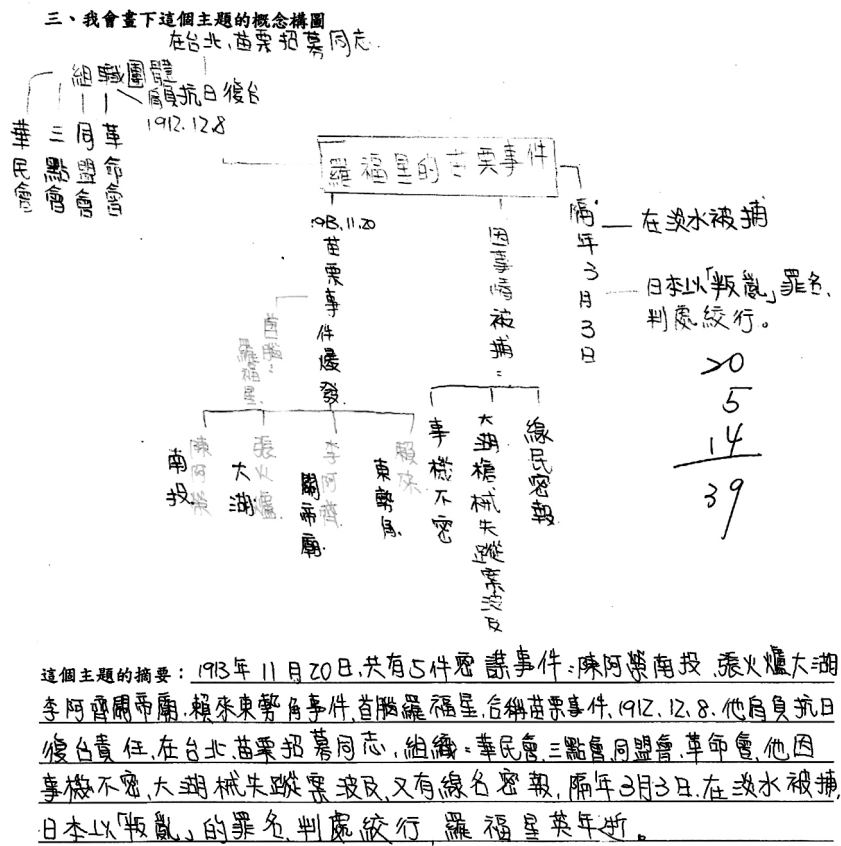 三、我會畫下這個主題的概念構圖
在台北、苗栗招募同志.
組職團體
肩負抗日復台
1912.12.8
華民會
三點會
同盟會
革命會
羅福星的苗栗事件
1913.11.20
苗栗事件爆發
首腦：
羅福星
陳阿榮
南投
張火爐
大湖
李阿齊
關帝廟
賴來
東勢角
因事跡被捕：
事機不密
大湖槍械失蹤案波及
線民密報
隔年3月3日
在淡水被捕
日本以「叛亂」罪名,
判處絞行。
20
5
14
39
這個主題的摘要：1913年11月20日,共有5件密謀事件:陳阿榮南投、張火爐大湖
李阿齊關帝廟、賴來東勢角事件,首腦羅福星,合稱苗栗事件,1912.12.8.他肩負抗日
復台責任,在台北、苗栗招募同志,組織:華民會、三點會、同盟會、革命會,他因
事機不密、大湖械失蹤案波及,又有線名密報,隔年3月3日.在淡水被捕,
日本以「叛亂」的罪名、判處絞行,羅福星英年逝。